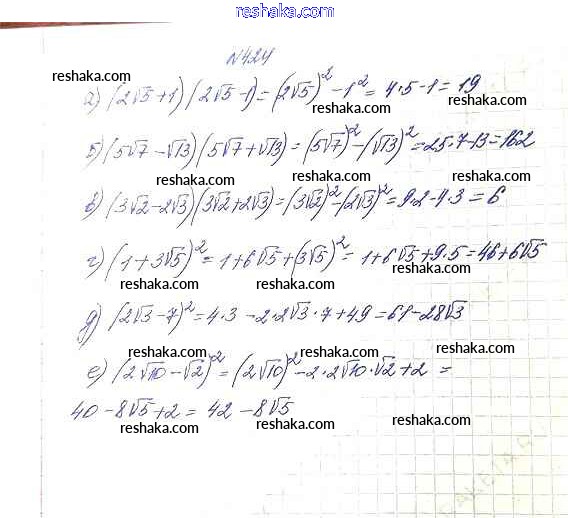 reshaka.com
N424
reshaka.com
а) (2√5+1)(2√5-1)=(2√5)²-1²=4·5-1=19
reshaka.com reshaka.com
б) (5√7-√13)(5√7+√13)=(5√7)²-(√13)²=25·7-13=162
reshaka.com reshaka.com reshaka.com
в) (3√2-2√3)(3√2+2√3)=(3√2)²-(2√3)²=9·2-4·3=6
reshaka.com reshaka.com reshaka.com
г) (1+3√5)²=1+6√5+(3√5)²=1+6√5+9·5=46+6√5
reshaka.com reshaka.com reshaka.com
д) (2√3-7)²=4·3-2·2√3·7+49=61-28√3
reshaka.com reshaka.com reshaka.com
е) (2√10-√2)²=(2√10)²-2·2√10·√2+2=
reshaka.com reshaka.com
40-8√5+2=42-8√5
reshaka.com reshaka.com
reshaka.com
reshaka.com